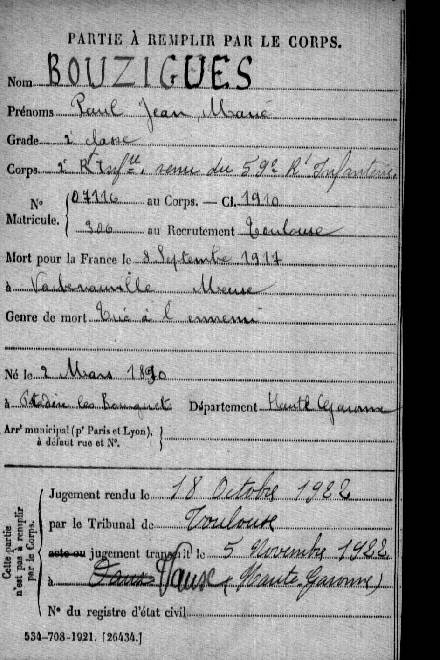 PARTIE À REMPLIR PAR LE CORPS.
Nom BOUZIGUES
Prénoms Paul Jean Marie
Grade 2e classe
Corps 2e Rt Infrie, venu du 59e Rt Infanterie.
No Matricule. { 07116 au Corps. — Cl. 1910
306 au Recrutement Toulouse
Mort pour la France le 8 Septembre 1917
à Vacherauville Meuse
Genre de mort Tué à l'ennemi
Né le 2 Mars 1890
à Département Haute Garonne
Arrt municipal (pr Paris et Lyon), à défaut rue et No. }
Cette partie n'est pas à remplir par le Corps.
Jugement rendu le 18 Octobre 1922
par le Tribunal de Toulouse
acte ou jugement transcrit le 5 Novembre 1922
à Vaux (Haute Garonne)
No du registre d'état civil
534-708-1921. [26434.]